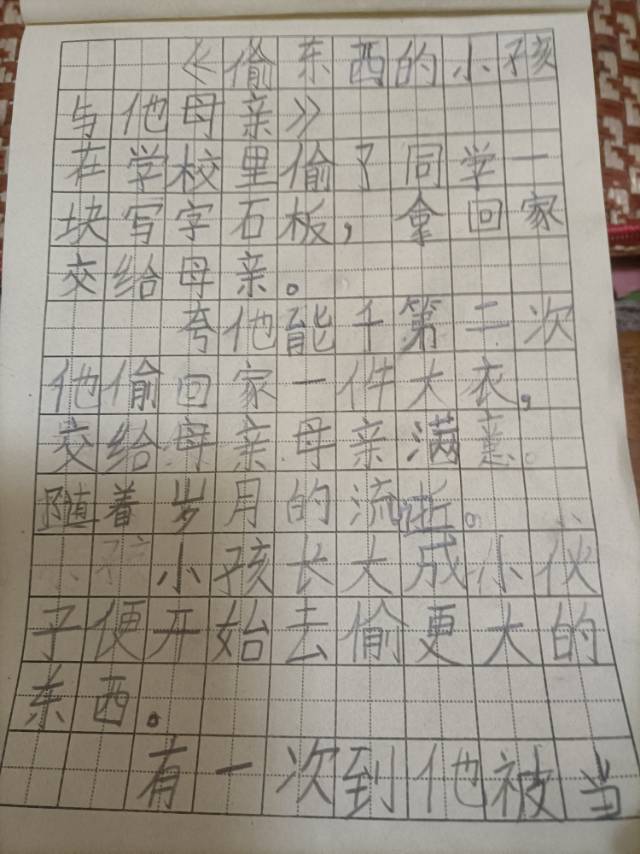 《偷东西的小孩
与他母亲》
在学校里偷了同学一
块写字石板，拿回家
交给母亲。
夸他能干第二次
他偷回家一件大衣，
交给母亲母亲满意。
随着岁月的流逝。
小孩长大成小伙
子便开始去偷更大的
东西。
有一次到他被当